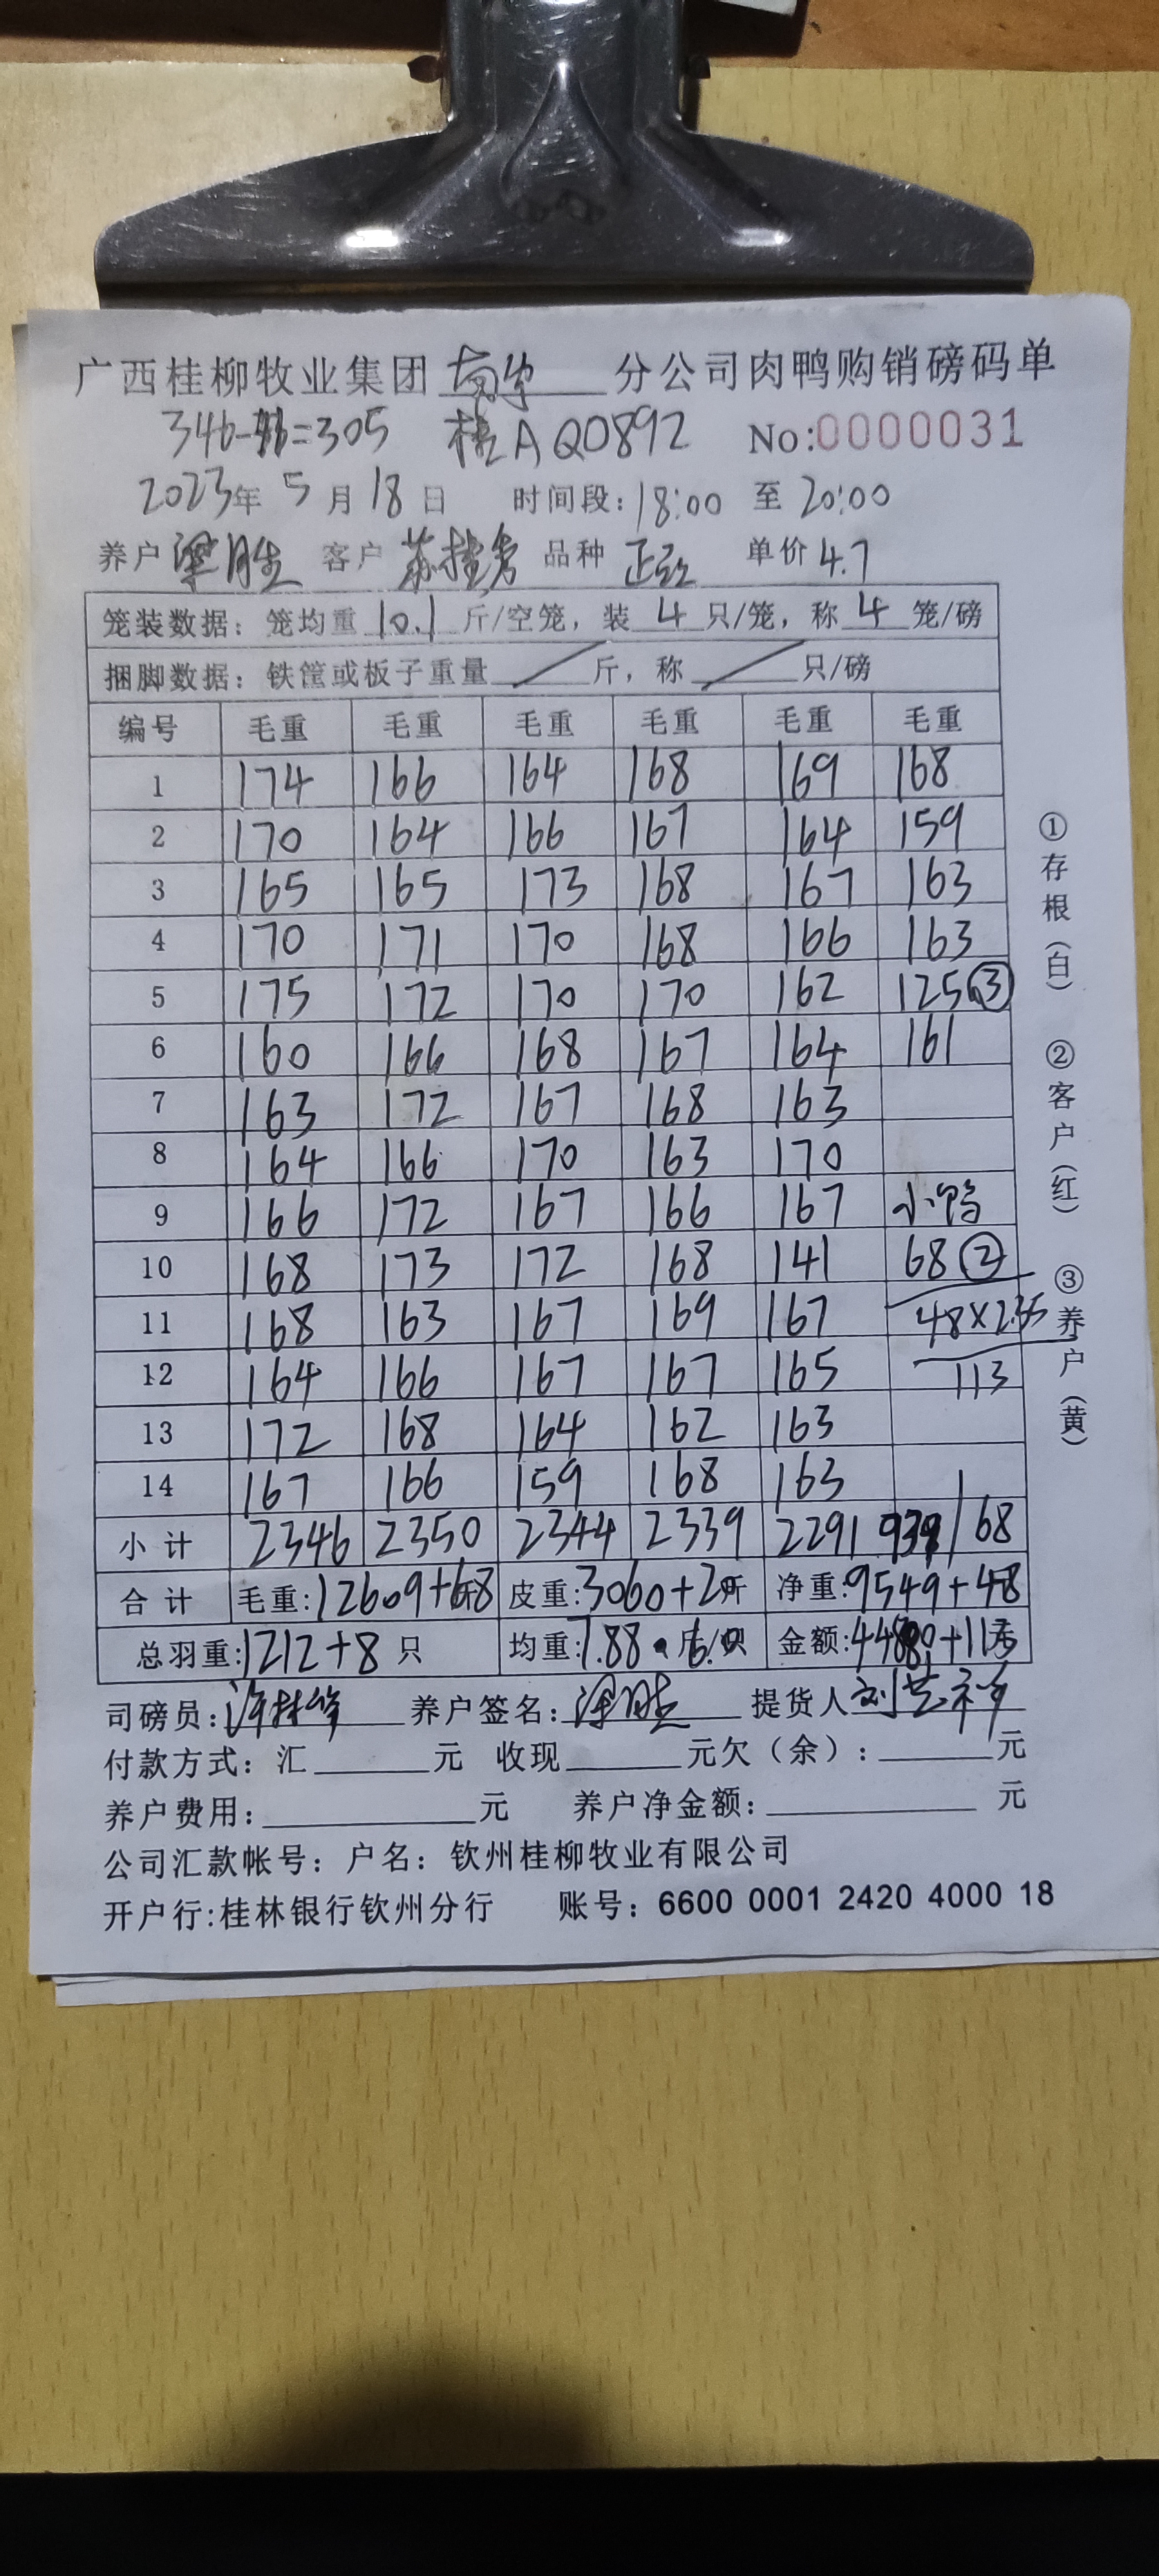 广西桂柳牧业集团 分公司肉鸭购销磅码单
346- =305 桂A Q0892 No:0000031
2023年 5 月 18 日 时间段:18:00 至 20:00
养户 梁胜 客户 苏 品种 单价 4.7
笼装数据: 笼均重 10.1 斤/空笼, 装 4 只/笼, 称 4 笼/磅
捆脚数据: 铁筐或板子重量 斤, 称 只/磅
编号 毛重 毛重 毛重 毛重 毛重 毛重
1 174 166 164 168 169 168
2 170 164 166 167 164 159
3 165 165 173 168 167 163
4 170 171 170 168 166 163
5 175 172 170 170 162 125 ③
6 160 166 168 167 164 161
7 163 172 167 168 163
8 164 166 170 163 170
9 166 172 167 166 167 小鸭
10 168 173 172 168 141 68 ②
11 168 163 167 169 167 48×2.35
12 164 166 167 167 165 113
13 172 168 164 162 163
14 167 166 159 168 163
小计 2346 2350 2344 2339 2291 939 / 68
合计 毛重:12609+68 皮重:3060+20斤 净重:9549+48
总羽重:1212+8 只 均重:7.88 斤/只 金额:44880+113
司磅员: 养户签名:梁胜 提货人
付款方式: 汇 元 收现 元欠(余): 元
养户费用: 元 养户净金额: 元
公司汇款帐号: 户名: 钦州桂柳牧业有限公司
开户行:桂林银行钦州分行 账号: 6600 0001 2420 4000 18
①存根(白) ②客户(红) ③养户(黄)